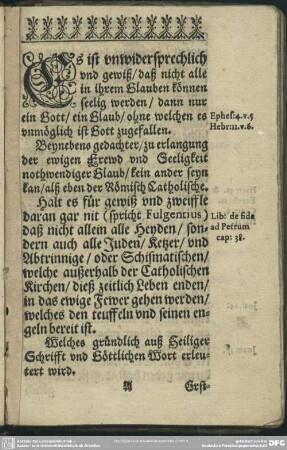 Es ist vnwidersprechlich
vnd gewiß/ daß nicht alle
in ihrem Glauben können
seelig werden/ dann nur
ein Gott/ ein Glaub/ ohne welchen es
vnmöglich ist Gott zugefallen.
Ephes:4.v.5
Hebr:11.v.6.
Beynebens gedachter/ zu erlangung
der ewigen Frewd vnd Seeligkeit
nothwendiger Glaub/ kein ander seyn
kan/ alß eben der Römisch Catholische.
Halt es für gewiß vnd zweiffle
daran gar nit (spricht Fulgentius)
daß nicht allein alle Heyden/ son-
dern auch alle Juden/ Ketzer/ vnd
Abtrinnige/ oder Schismatischen/
welche außerhalb der Catholischen
Kirchen/ dieß zeitlich Leben enden/
in das ewige Fewer gehen werden/
welches den teuffeln vnd seinen en-
geln bereit ist.
Lib: de fide
ad Petrum
cap: 38.
Welches gründlich auß Heiliger
Schrifft vnd Göttlichen Wort erleu-
tert wird.
A Erst-
DFG